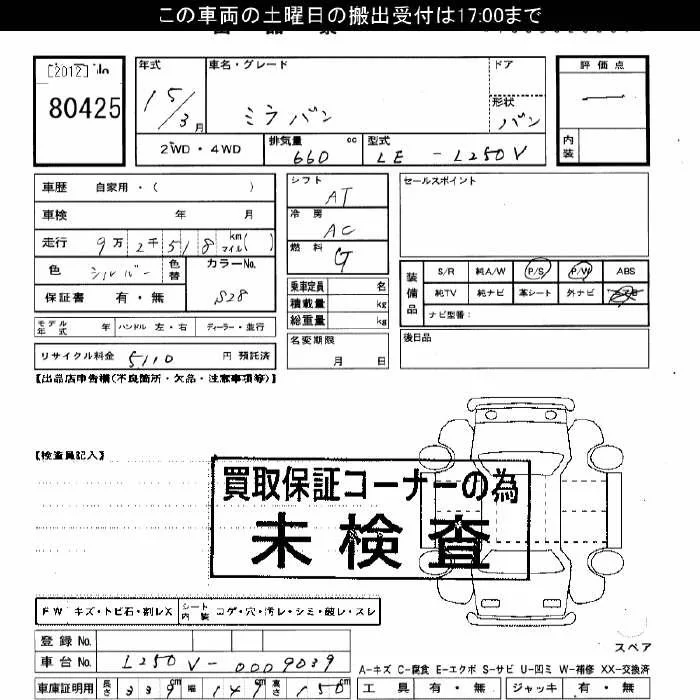 この車両の土曜日の搬出受付は17:00まで
[2012]
80425
年式
15/3月
車名・グレード
ミラバン
ドア
形状
バン
評価点
内装
2WD・4WD
排気量 cc
660
型式
LE - L250V
車歴 自家用・( )
車検 年 月
走行 9万2千518 km マイル( )
色 シルバー 色替
カラーNo.
S28
保証書 有・無
シフト
AT
冷房
AC
燃料
G
乗車定員 名
積載量 kg
総重量 kg
セールスポイント
装備品
S/R 純A/W P/S P/W ABS
純TV 純ナビ 革シート 外ナビ
ナビ型番:
モデル年式 年 ハンドル 左・右 ディーラー・並行
名変期限
月 日
後日品
リサイクル料金 5110 円 預託済
【出品店申告欄(不良箇所・欠品・注意事項等)】
【検査員記入】
買取保証コーナーの為
未検査
FW キズ・トビ石・割レX シート内装 コゲ・穴・汚レ・シミ・破レ・スレ
スペア
登録No.
車台No. L250V-0009039
A-キズ C-腐食 E-エクボ S-サビ U-凹ミ W-補修 XX-交換済
車庫証明用 長さ 339cm 幅 149cm 高さ 150cm
工具 有・無 ジャッキ 有・無